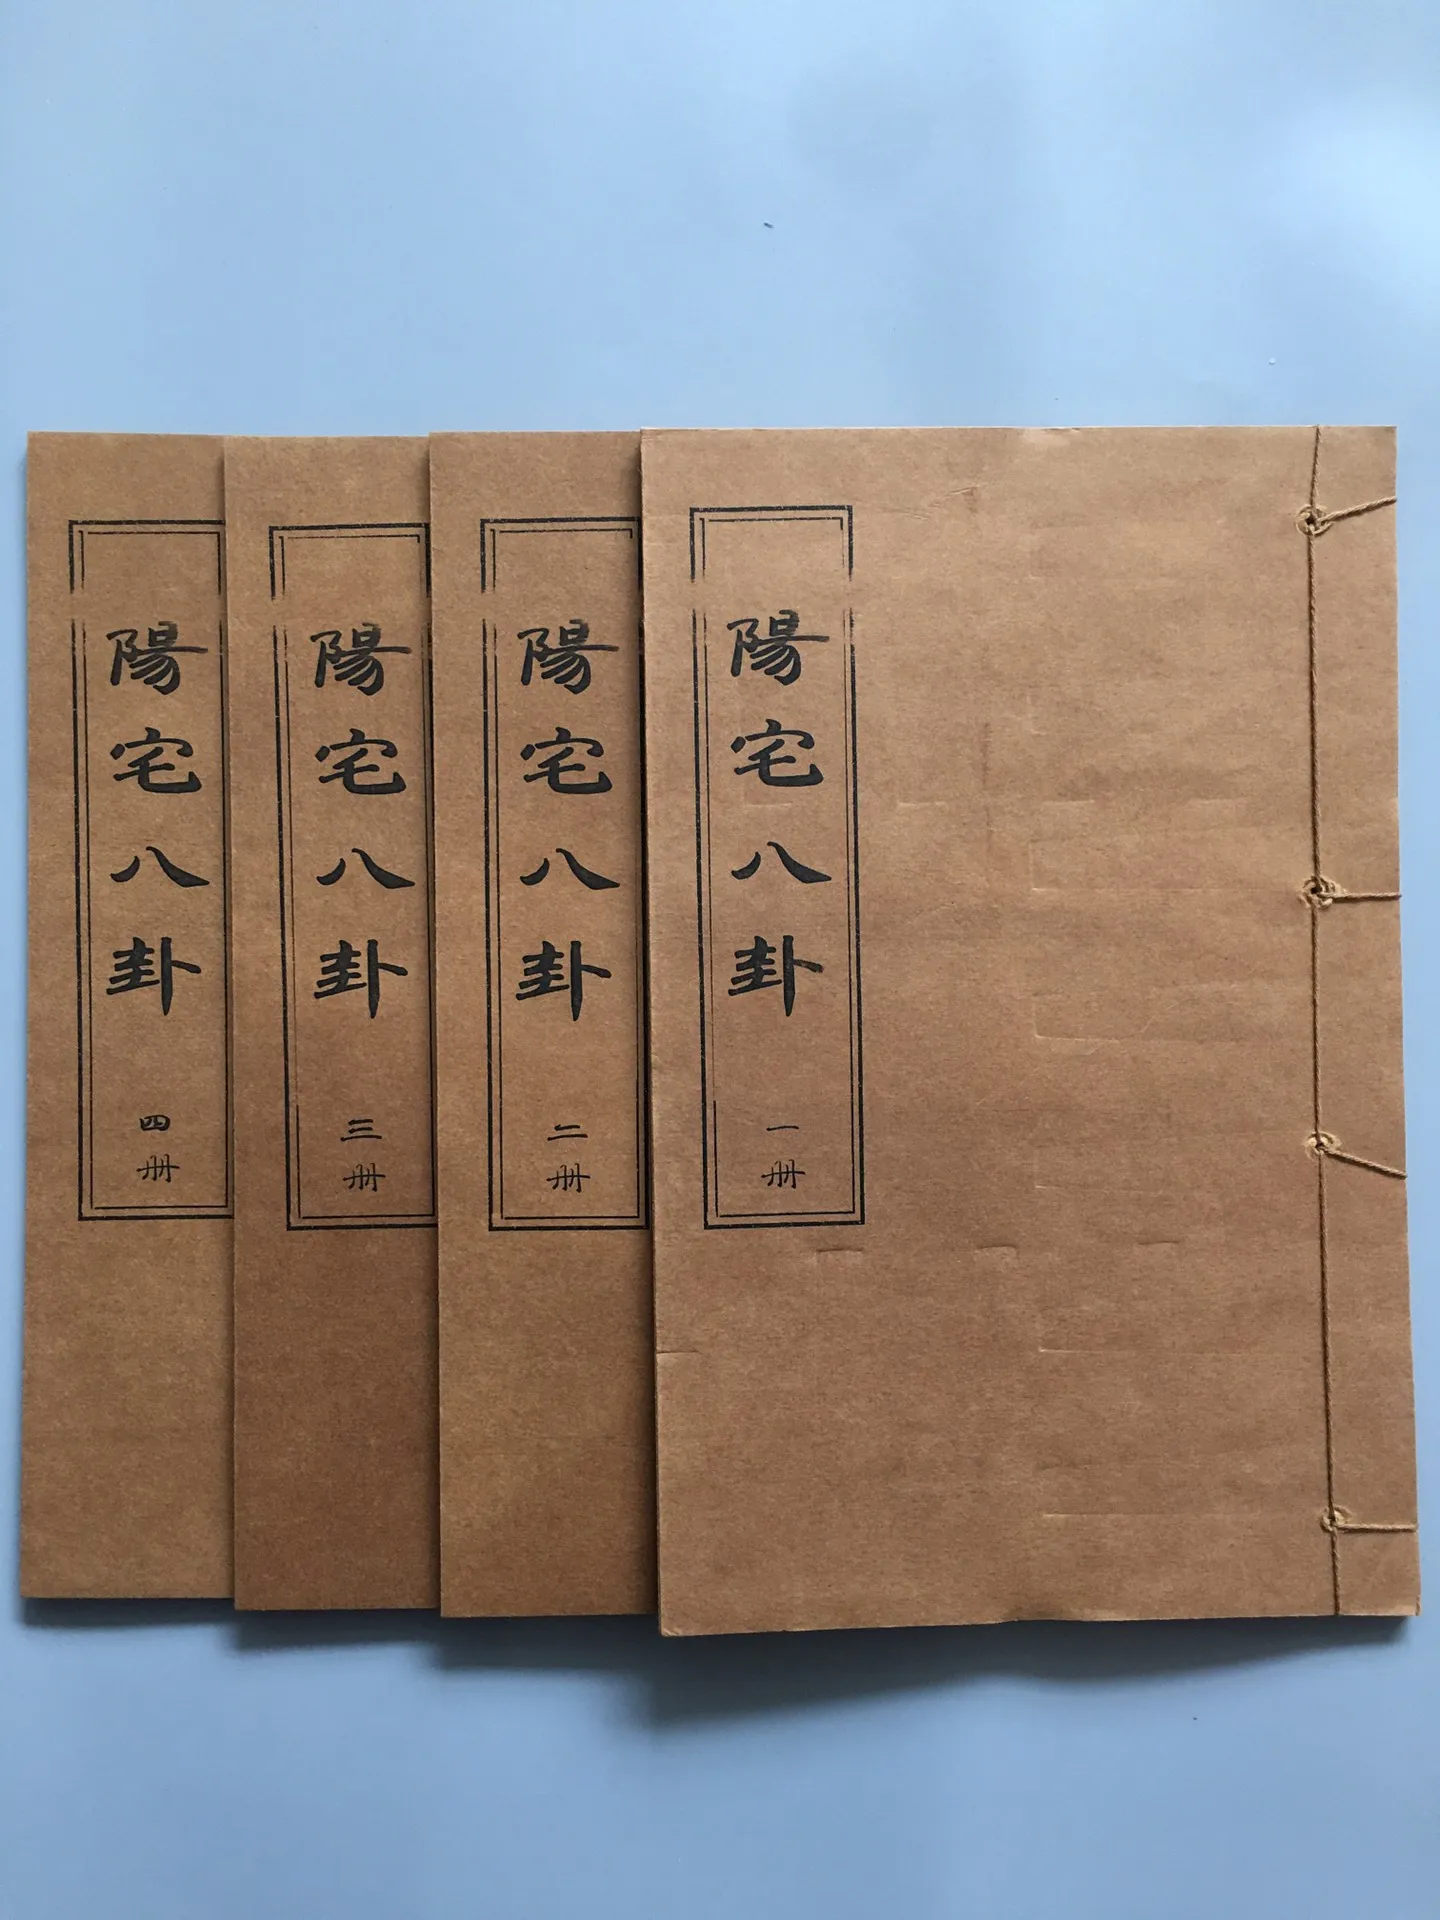 陽宅八卦
一册
陽宅八卦
二册
陽宅八卦
三册
陽宅八卦
四册